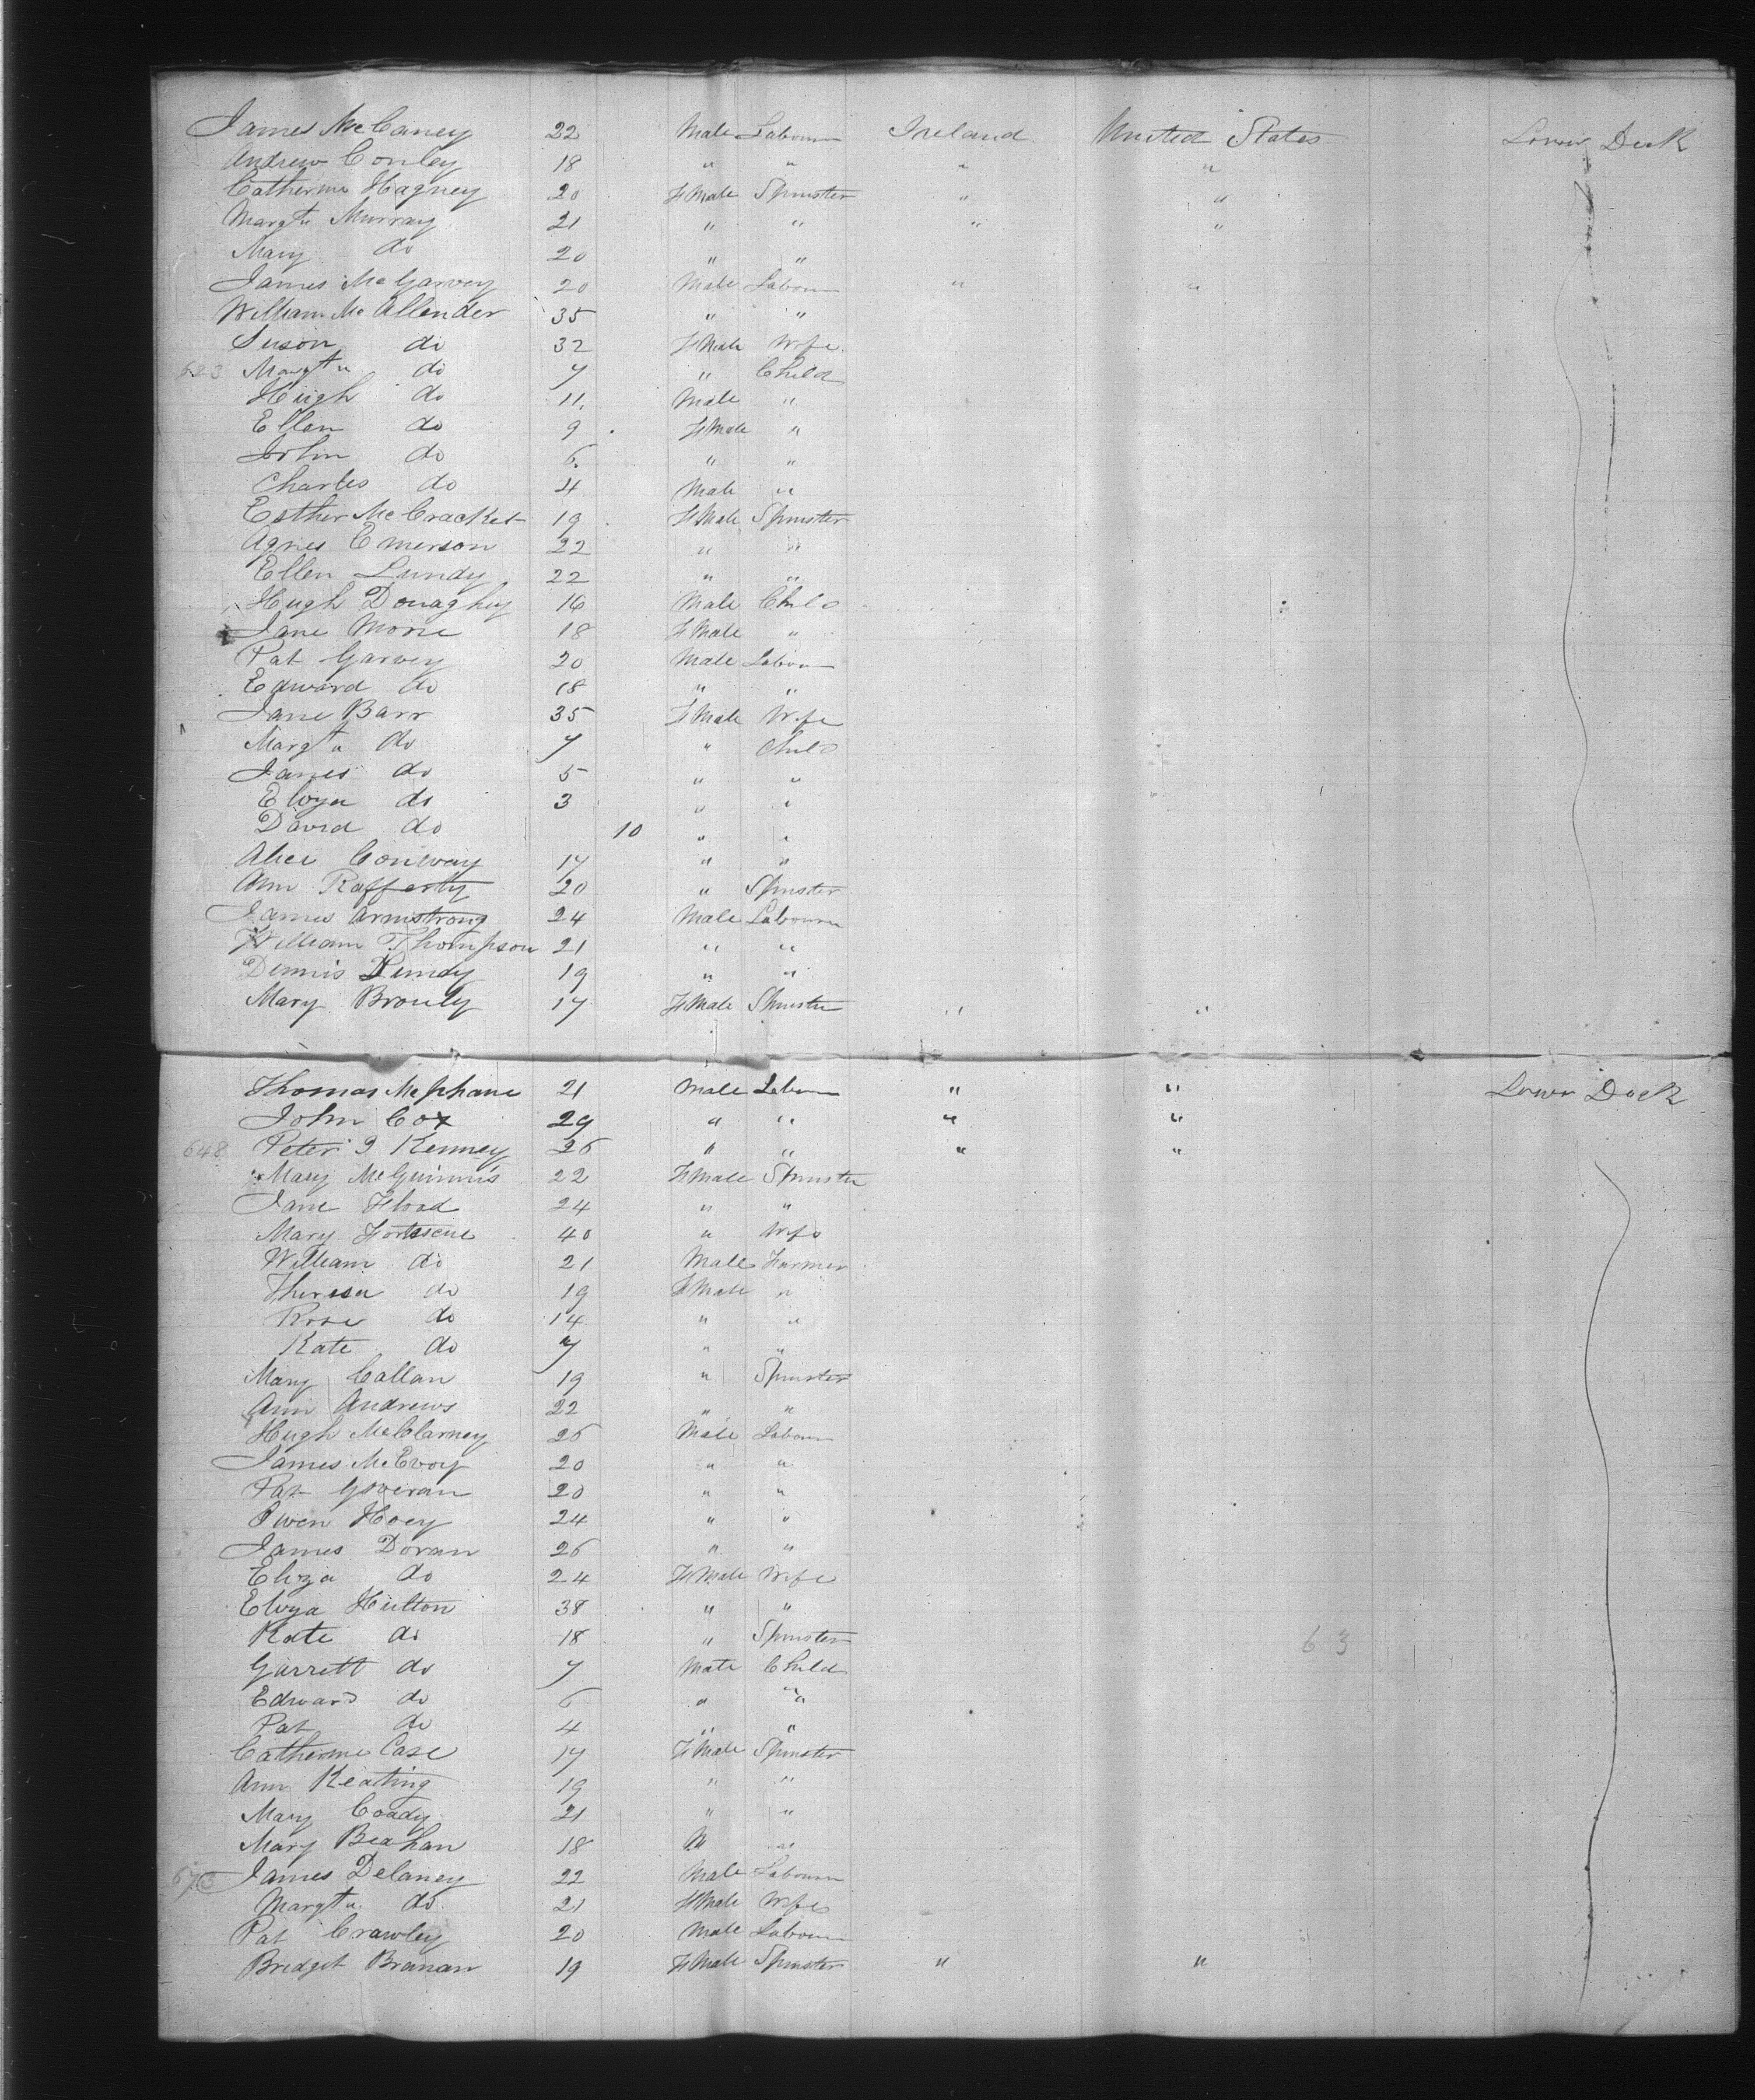 James McCaney 22 Male Labourer Ireland United States Lower Deck
Andrew Conley 18 " " " "
Catherine Hagney 20 FMale Spinster " "
Margtu Murray 21 " " " "
Mary do 20 " "
James McGarvey 20 Male Labour " "
William McAllender 35 " "
Suson do 32 FMale Wife
623 Margtu do 7 " Child
Hugh do 11 Male "
Ellen do 9 FMale "
John do 6 " "
Charles do 4 Male "
Esther McCracket 19 FMale Spinster
Agnes Emerson 22 " "
Ellen Lundy 22 " "
Hugh Donaghey 16 Male Child
Jane 18 FMale "
Pat Garvey 20 Male Labour
Edward do 18 " "
Jane Barr 35 FMale Wife
Margtu do 7 " Child
James do 5 " "
Eliza do 3 " "
David do 10 " "
Alice Conway 17 " "
Ann Rafferty 20 " Spinster
James Armstrong 24 Male Labourer
William Thompson 21 " "
Dennis 19 " "
Mary Brouly 17 FMale Spinster " "
Thomas McPhane 21 Male Labour " " Lower Deck
John Cox 29 " " " "
648 Peter Kenney 26 " " " "
Mary McGuinnis 22 FMale Spinster
Jane Flood 24 " "
Mary Fortescue 40 " Wife
William do 21 Male Farmer
Theresa do 19 FMale "
Rose do 14 " "
Kate do 7 " "
Mary Callan 19 " Spinster
Ann Andrews 22 " "
Hugh McClarney 26 Male Labour
James McEvoy 20 " "
Pat Goveran 20 " "
Owen Hoey 24 " "
James Doran 26 " "
Eliza do 24 FMale Wife
Eliza Hulton 38 " "
Kate do 18 " Spinster 63
Garrett do 7 Male Child
Edward do 6 " "
Pat do 4 " "
Catherine Case 17 FMale Spinster
Ann Keating 19 " "
Mary Coady 21 " "
Mary Beahan 18 " "
673 James Delaney 22 Male Labourer
Margtu do 21 FMale Wife
Pat Crawley 20 Male Labour
Bridget Branan 19 FMale Spinster " "